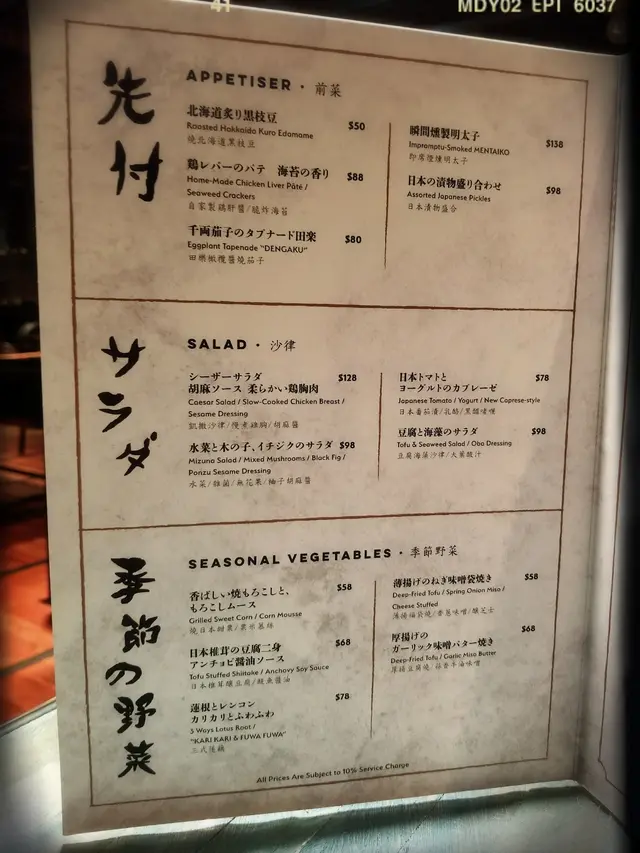 41
MDY02 EPT 6037
先付
APPETISER · 前菜
北海道炙り黒枝豆
$50
Roasted Hokkaido Kuro Edamame
燒北海道黑枝豆
鶏レバーのパテ 海苔の香り
$88
Home-Made Chicken Liver Pâté /
Seaweed Crackers
自家製鷄肝醬/脆炸海苔
千両茄子のタプナード田楽
$80
Eggplant Tapenade "DENGAKU"
田樂橄欖醬燒茄子
瞬間燻製明太子
$138
Impromptu-Smoked MENTAIKO
即席煙燻明太子
日本の漬物盛り合わせ
$98
Assorted Japanese Pickles
日本漬物盛合
サラダ
SALAD · 沙律
シーザーサラダ
$128
胡麻ソース 柔らかい鶏胸肉
Caesar Salad / Slow-Cooked Chicken Breast /
Sesame Dressing
凱撒沙律/慢煮雞胸/胡麻醬
水菜と木の子、イチジクのサラダ $98
Mizuna Salad / Mixed Mushrooms / Black Fig /
Ponzu Sesame Dressing
水菜/雜菌/無花果/柚子胡麻醬
日本トマトと
$78
ヨーグルトのカプレーゼ
Japanese Tomato / Yogurt / New Caprese-style
日本番茄漬/乳酪/黑醋啫喱
豆腐と海藻のサラダ
$98
Tofu & Seaweed Salad / Oba Dressing
豆腐海藻沙律/大葉酸汁
季節の野菜
SEASONAL VEGETABLES · 季節野菜
香ばしい焼もろこしと、
$58
もろこしムース
Grilled Sweet Corn / Corn Mousse
燒日本甜粟/粟米慕絲
日本椎茸の豆腐二身
$68
アンチョビ醤油ソース
Tofu Stuffed Shiitake / Anchovy Soy Sauce
日本椎茸釀豆腐/鯷魚醬油
蓮根とレンコン
$78
カリカリとふわふわ
3 Ways Lotus Root /
"KARI KARI & FUWA FUWA"
三式蓮藕
薄揚げのねぎ味噌袋焼き
$58
Deep-Fried Tofu / Spring Onion Miso /
Cheese Stuffed
薄揚福袋燒/香蔥味噌/釀芝士
厚揚げの
$68
ガーリック味噌バター焼き
Deep-Fried Tofu / Garlic Miso Butter
厚揚豆腐燒/蒜香牛油味噌
All Prices Are Subject to 10% Service Charge